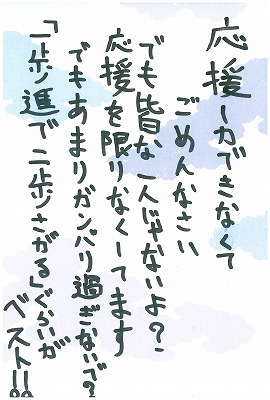 応援しかできなくて
ごめんなさい
でも皆な一人じゃないよ?
応援を限りなくしてます
でもあまりガンバリ過ぎないで?
「一歩進で二歩さがる」ぐらいが
ベスト!!